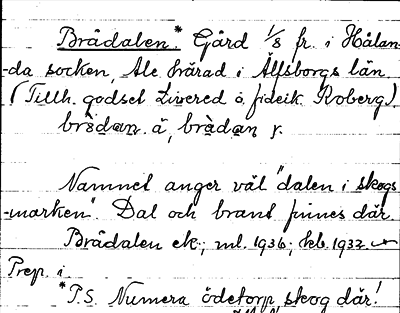 Brådalen.* Gård 1/8 fr. i Hålan-
-da socken, Ale härad i Älfsborgs län
(Tillh. godset Livered o. fideik Roberg.)
brå̀dan. ä, brå̀dan y.
Namnet anger väl "dalen i skogs
-marken". Dal och brant finnes där.
Brådalen ek.; ml. 1936; hb. 1932.
Prep. i
*P.S. Numera ödetorp, skog där!